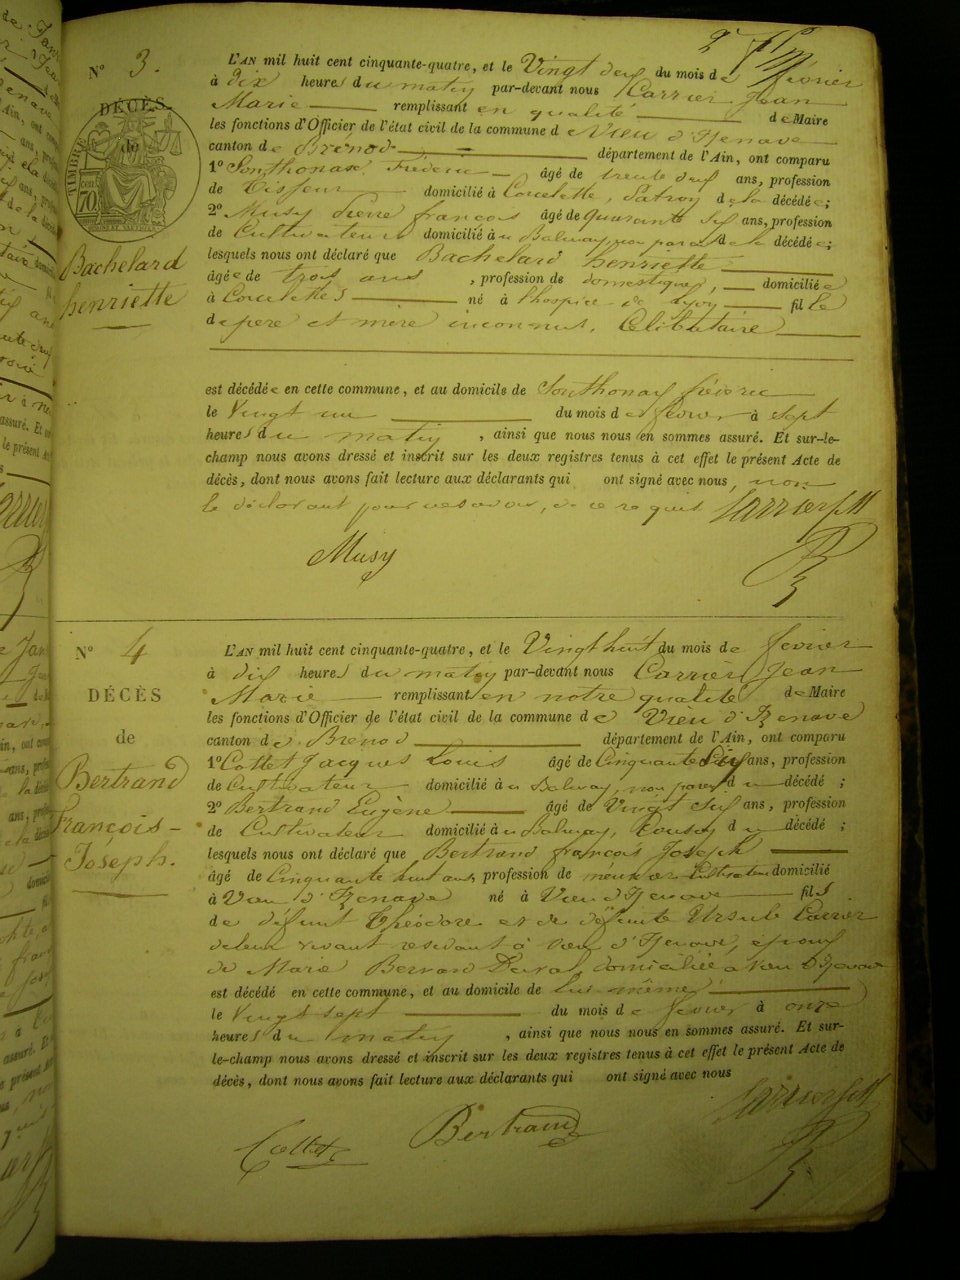 N° 3.
DÉCÈS
de
TIMBRE
70
Bachelard
henriette
L'AN mil huit cent cinquante-quatre, et le Vingt deux du mois de février
à dix heures du matin par-devant nous Carrier Jean
Marie remplissant en qualité de Maire
les fonctions d'Officier de l'état civil de la commune de Vieu d'Izenave
canton de Brénod département de l'Ain, ont comparu
1° Sonthonax Frédéric âgé de trente deux ans, profession
de Tisseur domicilié à Coucelette, Patron de la décédée;
2° Musy Pierre françois âgé de quarante six ans, profession
de Cultivateur domicilié à Balmay, non parent de la décédée;
lesquels nous ont déclaré que Bachelard henriette
âgée de trois ans, profession de domestique, domiciliée
à Coucelettes né à l'hospice de Lyon fille
de père et mère inconnus. Célibataire
est décédée en cette commune, et au domicile de Sonthonax fréderic
le Vingt un du mois de février à sept
heures du matin, ainsi que nous nous en sommes assuré. Et sur-le-
champ nous avons dressé et inscrit sur les deux registres tenus à cet effet le présent Acte de
décès, dont nous avons fait lecture aux déclarants qui ont signé avec nous, non
le déclarant pour ne savoir, de ce requis Carrier JM
Musy
N° 4
DÉCÈS
de
Bertrand
François-
Joseph.
L'AN mil huit cent cinquante-quatre, et le Vingt huit du mois de février
à dix heures du matin par-devant nous Carrier Jean
Marie remplissant en notre qualité de Maire
les fonctions d'Officier de l'état civil de la commune de Vieu d'Izenave
canton de Brenod département de l'Ain, ont comparu
1° Cottet Jacques Louis âgé de Cinquante Six ans, profession
de Cultivateur domicilié à Balmay, non parent du décédé;
2° Bertrand Eugène âgé de Vingt Six ans, profession
de Cultivateur domicilié à Balmay, Cousin du décédé;
lesquels nous ont déclaré que Bertrand françois Joseph
âgé de Cinquante huit ans, profession de Cultivateur domicilié
à Vieu d'Izenave né à Vieu d'Izenave fils
de défunt Théodore et de défunte Ursule Carrier
de leur vivant residant à Vieu d'Izenave, époux
de Marie Bernard Duval, domiciliée à Vieu d'Izenave
est décédé en cette commune, et au domicile de lui-même
le Vingt sept du mois de février à onze
heures du matin, ainsi que nous nous en sommes assuré. Et sur-
le-champ nous avons dressé et inscrit sur les deux registres tenus à cet effet le présent Acte de
décès, dont nous avons fait lecture aux déclarants qui ont signé avec nous
Carrier JM
Cottet Bertrand